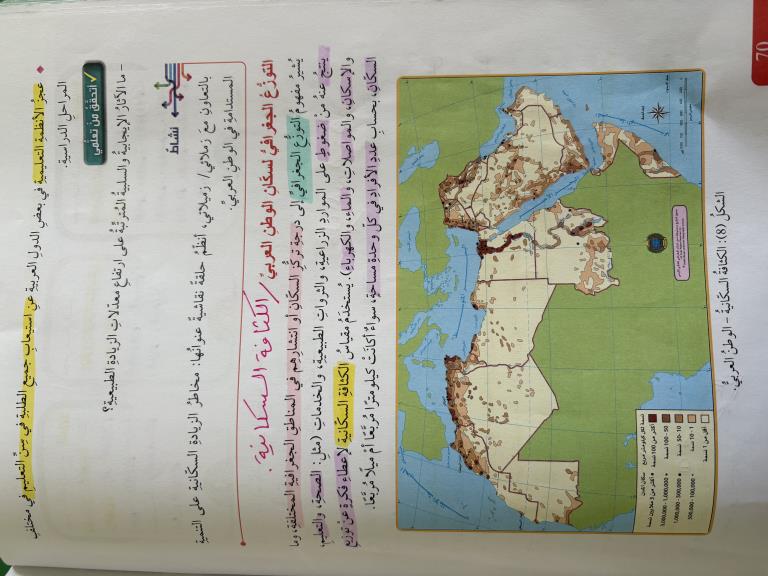 ◆ عجزُ الأنظمةِ التعليميةِ في بعضِ الدولِ العربيةِ عنِ استيعابِ جميعِ الطلبةِ في سنِّ التعليمِ في مختلفِ
المراحلِ الدراسيةِ.
✓ أتحقَّقُ مِنْ تعلُّمي
- ما الآثارُ الإيجابيةُ والسلبيةُ المُترتِّبةُ على ارتفاعِ معدَّلاتِ الزيادةِ الطبيعيةِ؟
نشاطٌ
بالتعاونِ معَ زملائي/ زميلاتي، أُنظِّمُ حلقةً نقاشيةً عنوانُها: مخاطرُ الزيادةِ السكّانيةِ على التنميةِ
المستدامةِ في الوطنِ العربيِّ.
التوزُّعُ الجغرافيُّ لسكّانِ الوطنِ العربيِّ / الكثافة السكانية.
يُشيرُ مفهومُ التوزُّعِ الجغرافيِّ إلى درجةِ تركُّزِ السكّانِ أو انتشارِهِم في المناطقِ الجغرافيةِ المختلفةِ، وما
ينتجُ عنهُ منْ ضغوطٍ على المواردِ الزراعيةِ، والثرواتِ الطبيعيةِ، والخدماتِ (مثلِ: الصحةِ، والتعليمِ،
والإسكانِ، والمواصلاتِ، والماءِ، والكهرباءِ). يُستخدَمُ مقياسُ الكثافةِ السكّانيةِ لإعطاءِ فكرةٍ عنْ توزيعِ
السكّانِ، بحسابِ عددِ الأفرادِ في كلِّ وحدةِ مساحةٍ، سواءٌ أكانتْ كيلو مترًا مُربَّعًا أم ميلًا مُربَّعًا.
نسمة لكل كيلومتر مربع
أكثر من 100 نسمة
50 - 100 نسمة
10 - 50 نسمة
1 - 10 نسمة
أقل من 1 نسمة
سكان المدن
أكثر من 3 ملايين نسمة
1,000,000 - 3,000,000
500,000 - 1,000,000
100,000 - 500,000
الشكلُ (8): الكثافةُ السكّانيةُ - الوطنُ العربيُّ.
70